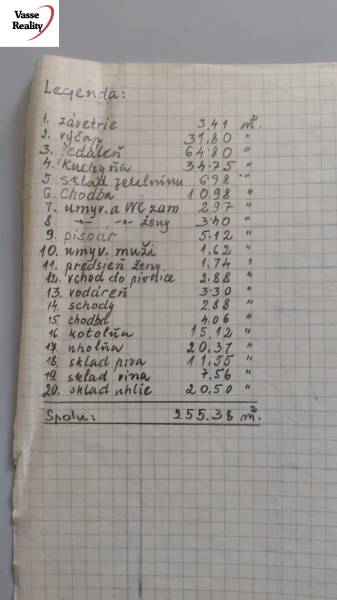 Vasse
Reality
Legenda:
1. závetrie 3,41 m².
2. výčap 31.80 "
3. jedáleň 64.80 "
4. kuchyňa 34.75 "
5. sklad zeleninu 6.98 "
6. chodba 10.98 "
7. umyv. a WC zam 2.97 "
8. -"- -"- ženy 3.40 "
9. pisoár 5.12 "
10. umyv. muži 1.62 "
11. predsieň ženy 1.74 "
12. vchod do pivnice 2.88 "
13. vodáreň 3.30 "
14. schody 2.88 "
15. chodba 4.06 "
16. kotolňa 15.12 "
17. uholňa 20.37 "
18. sklad piva 11.55 "
19. sklad vína 7.56 "
20. sklad uhlie 20.50 "
Spolu: 255.38 m².